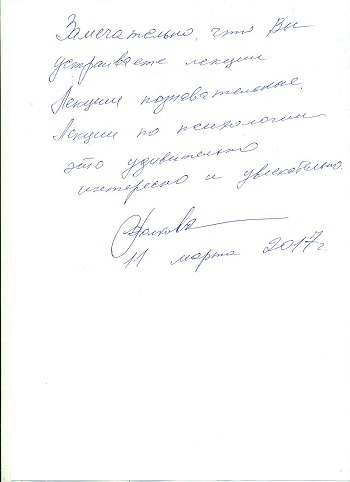 Замечательно, что Вы
устраиваете лекции.
Лекции познавательные.
Лекции по психологии
это удивительно
интересно и увлекательно.
11 марта 2017г.